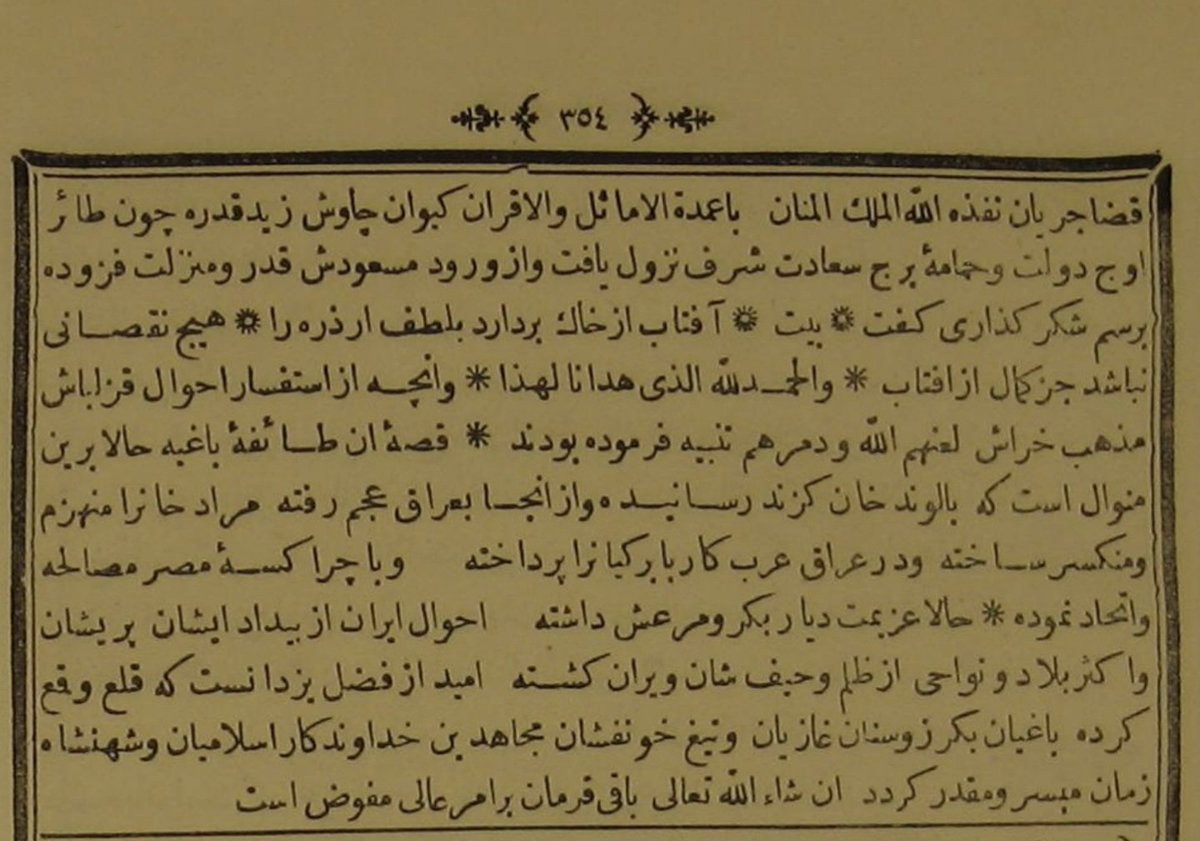 ٣٥٤
قضاجریان نفذه الله الملك المنان باعمدة الاماثل والاقران کیوان چاوش زیدقدره چون طائر
اوج دولت وحمامهٔ برج سعادت شرف نزول یافت واز ورود مسعودش قدر ومنزلت فزوده
برسم شکر کذاری کفت * بیت * آفتاب ازخاك بردارد بلطف ارذره را * هیچ نقصانی
نباشد جز کمال ازافتاب * والحمدلله الذی هدانا لهذا * وانچه ازاستفسار احوال قزلباش
مذهب خراش لعنهم الله ودمرهم تنبیه فرموده بودند * قصهٔ ان طائفهٔ باغیه حالا برین
منوال است که بالوند خان کزند رسانیده وازانجا بعراق عجم رفته مراد خانرا منهزم
ومنکسر ساخته ودر عراق عرب کار باربرکیانرا پرداخته وباچراکسهٔ مصر مصالحه
واتحاد نموده * حالا عزیمت دیار بکر ومرعش داشته احوال ایران ازبیداد ایشان پریشان
واکثر بلاد ونواحی ازظلم وحیف شان ویران کشته امید ازفضل یزدانست که قلع وقع
کرده باغیان بکرز وسنان غازیان وتیغ خونفشان مجاهدین خداوندکار اسلامیان وشهنشاه
زمان میسر ومقدر کردد ان شاء الله تعالی باقی فرمان برامر عالی مفوض است